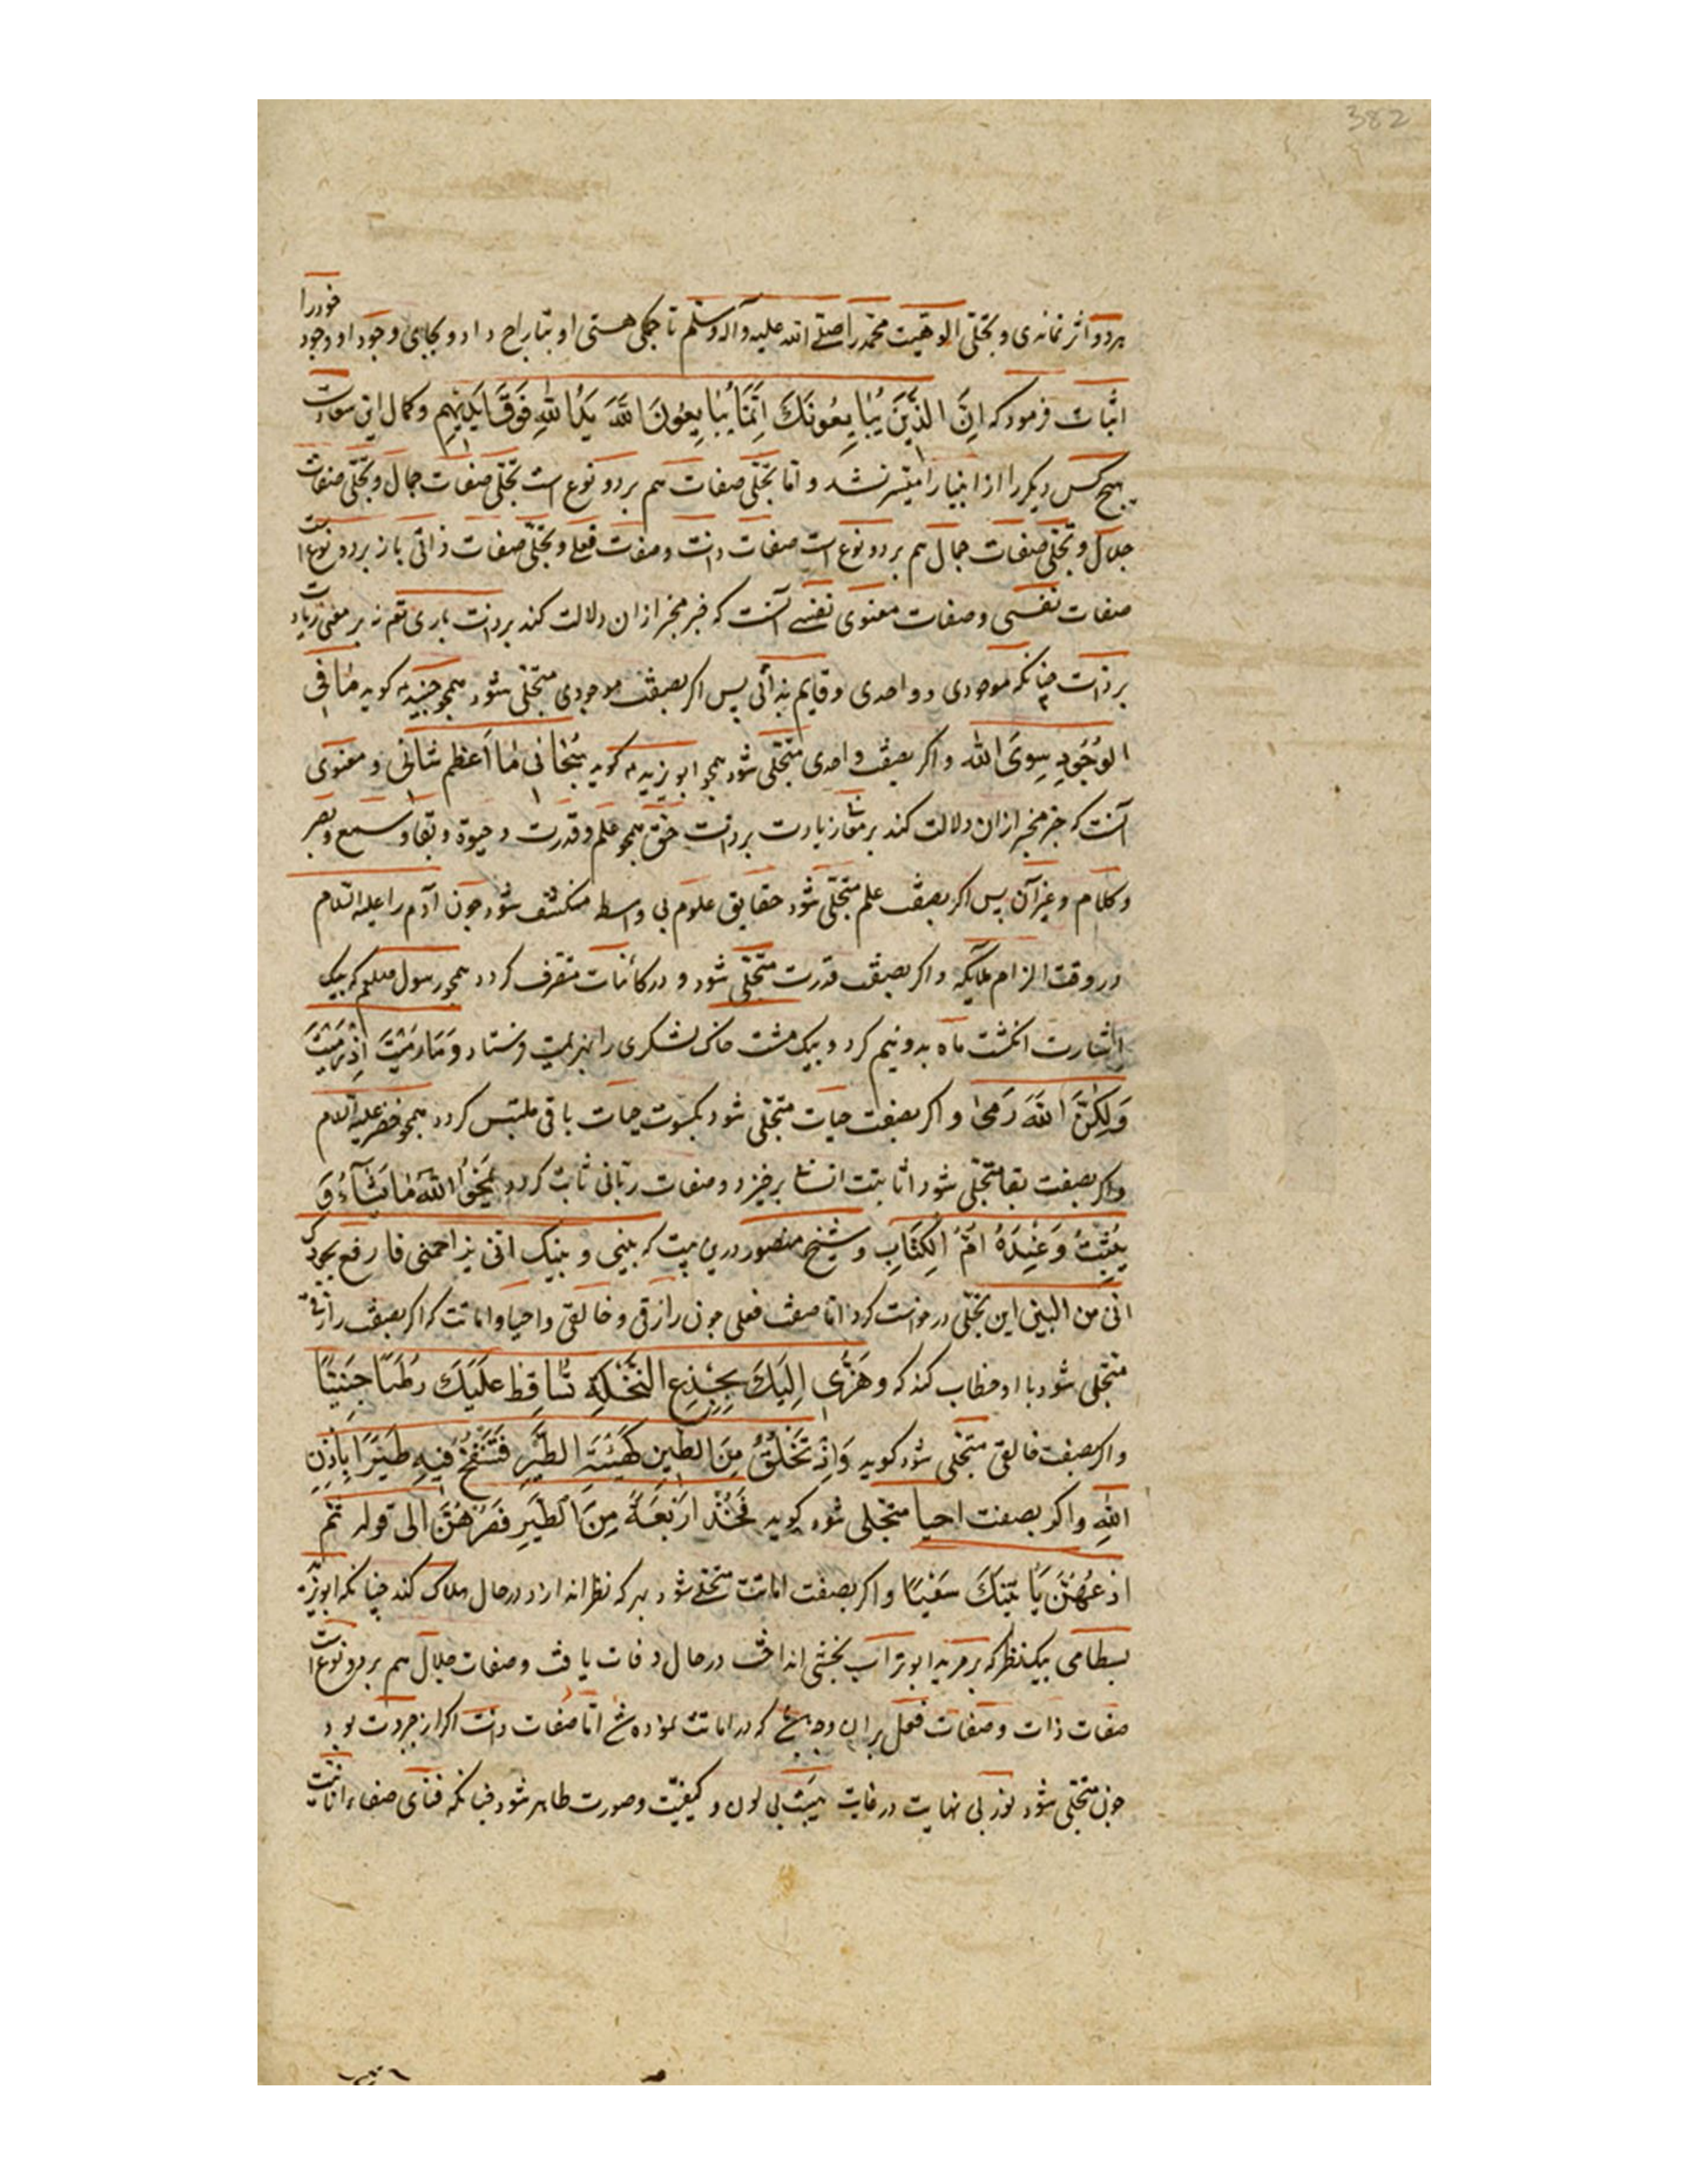 382
هردو اثر نماندی و تجلی الوهیت محمد را صلی الله علیه وآله وسلم تا جمکی هستی او بتاراج داد و بجای وجود او وجود خودرا
اثبات فرمود که اِنَّ الذَّینَ یُبٰایِعُونَكَ اِنَّمٰا یُبٰایِعُونَ اللّٰهَ یَدُ اللّٰهِ فَوْقَ اَیْدیٖهِمْ وکمال این سعادت
هیچ کس دیکر را از انبیا را میسر نشد و اما تجلی صفات هم بر دو نوع است تجلی صفات جمال و تجلی صفات
جلال و تجلی صفات جمال هم بر دو نوع است صفات ذات و صفات فعلی و تجلی صفات ذاتی باز بر دو نوع است
صفات نفسی و صفات معنوی نفسی آنست که خبر مخبر ازان دلالت کند بر ذات باری تعم نه بر معنی زیادت
بر ذات چنانکه موجودی و واحدی و قایم بذاتی پس اکر بصفت موجودی متجلی شود همجو جنید کوید مٰا فی
الوُجُودِ سِوَی اللّٰه و اکر بصفت واحدی متجلی شود همجو ابو یزید کوید سُبْحٰانی مٰا اَعْظَم شٰانی و معنوی
آنست که خبر مخبر ازان دلالت کند بر معنی زیادت بر ذات حق همجو علم و قدرت و حیوة و بقا و سمع و بصر
و کلام و غیر آن پس اکر بصفت علم متجلی شود حقایق علوم بی واسطه منکشف شود جون آدم را علیه السلام
در وقت الزام ملایکه و اکر بصفت قدرت متجلی شود و در کائنات متصرف کردد همجو رسول صلعم که بیک
اشارت انکشت ماه بدو نیم کرد و بیک مشت خاک لشکری را بهزیمت فرستاد وَمٰا رَمَیْتَ اِذْ رَمَیْتَ
وَلٰکِنَّ اللّٰهَ رَمیٰ و اکر بصفت حیات متجلی شود بکسوت حیات باقی ملتبس کردد همجو خضر علیه السلام
واکر بصفت بقا متجلی شود انانیت انسانی برخیزد و صفات ربانی ثابت کردد یَمْحُو اللّٰهُ مٰا یَشٰآءُ وَ
یُثْبِتُ وَعِنْدَهُ اُمُّ الْکِتَابِ و شیخ منصور درین بیت که بینی و بینک انی یزاحمنی فارفع بجودک
انی من البینی این تجلی درخواست کرد اما صفت فعلی جون رازقی و خالقی و احیا و اماتت که اکر بصفت رازقی
متجلی شود با او خطاب کند که وَهُزّی اِلَیْكَ بِجِذْعِ النَّخْلَةِ تُسٰاقِطْ عَلَیْكَ رُطَبًا جَنِیًّا
واکر بصفت خالقی متجلی شود کوید وَاِذْ تَخْلُقُ مِنَ الطّینِ کَهَیْئَةِ الطَّیْرِ فَتَنْفُخُ فیهِ طَیْرًا بِاِذْنِ
اللّٰهِ و اکر بصفت احیا متجلی شود کوید فَخُذْ اَرْبَعَةً مِنَ الطَّیْرِ فَصُرْهُنَّ الی قوله ثُمَّ
ادْعُهُنَّ یَأْتینَكَ سَعْیًا و اکر بصفت اماتت متجلی شود بهرکه نظر اندازد در حال هلاک کند چنانکه ابو یزید
بسطامی بیکنظر که بر مرید ابو تراب نخشبی انداخت در حال وفات یافت و صفات جلال هم بر دو نوع است
صفات ذات و صفات فعل بران وجهی که در اماتت نموده شد اما صفات ذات اکر از جبروت بود
جون متجلی شود نور بی نهایت در غایت هیبت بی لون و کیفیت و صورت ظاهر شود چنانکه فنای صفات انانیت